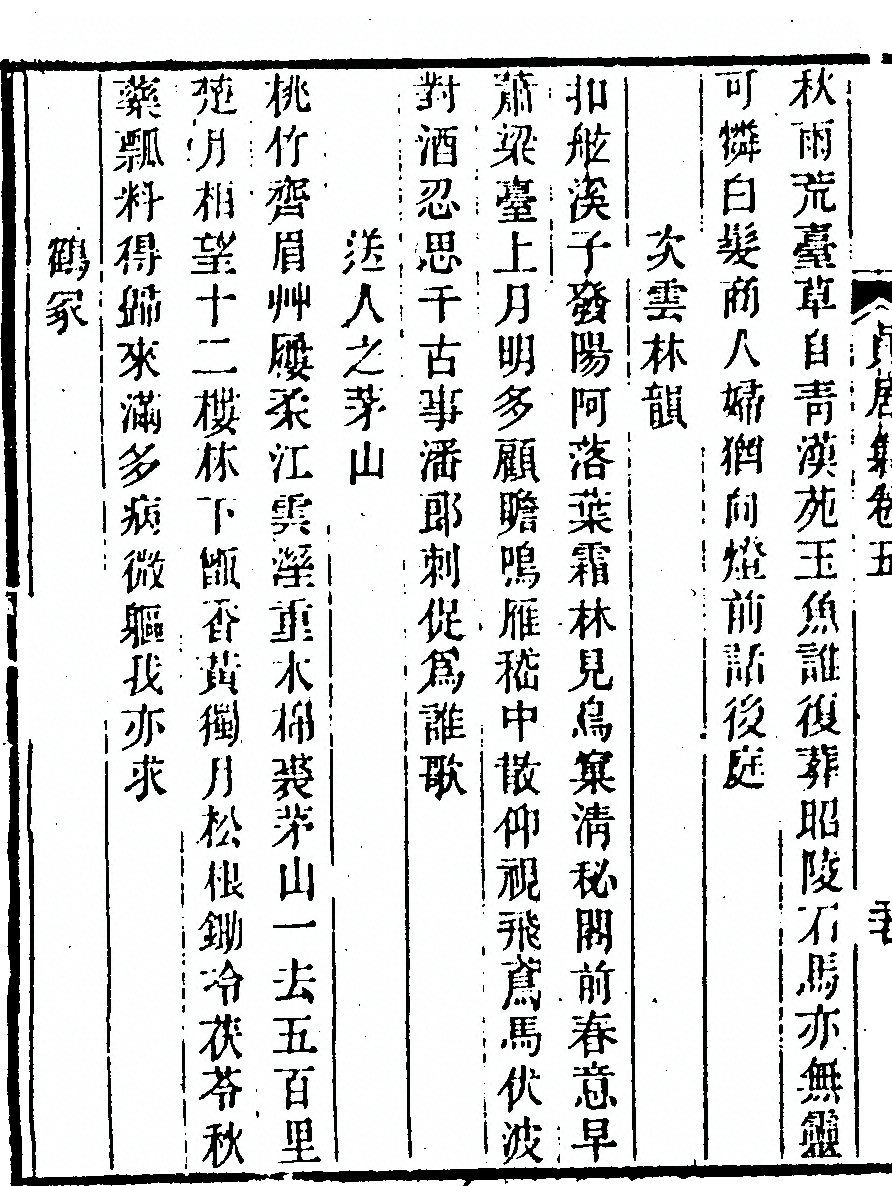 貞居集卷五
秋雨荒臺草自靑漢苑玉魚誰復葬昭陵石馬亦無靈
可憐白髮商人婦猶向燈前話後庭
次雲林韻
扣舷漁子發陽阿落葉霜林見鳥窠淸秘閣前春意早
蕭梁臺上月明多顧瞻鳴雁嵇中散仰視飛鳶馬伏波
對酒忍思千古事潘郎刺促爲誰歌
送人之茅山
桃竹齊眉艸屨柔江雲溼重木棉裘茅山一去五百里
楚月相望十二樓林下甑香黃獨月松根鋤冷茯苓秋
藥瓢料得歸來滿多病微軀我亦求
鶴冢